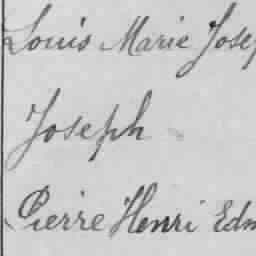 Louis Marie Josep
Joseph
Pierre Henri Edm